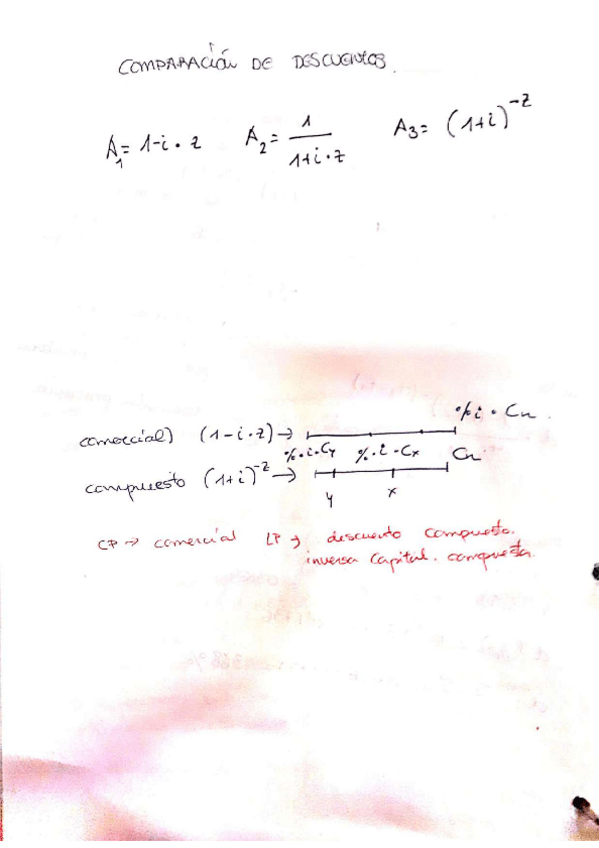 COMPARACIÓN DE DESCUENTOS.
A₁ = 1-i · z A₂ = 1/(1+i·z) A₃ = (1+i)^-z
% i · Cn.
comercial) (1-i·z) →
%·i·Cy %·i·Cx Cn
compuesto (1+i)^-z →
y x
CP → comercial LP → descuento compuesto.
inversa Capital. compuesta.